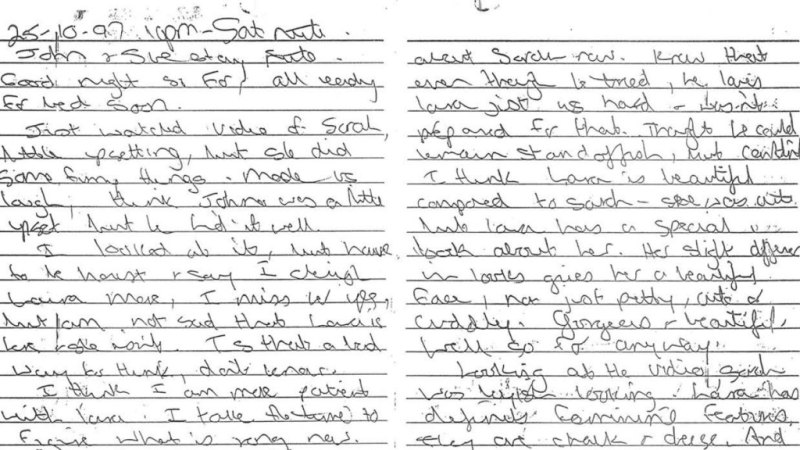 25-10-97 10pm - Sat nite.
John & Sue stay
Good night so far, all ready
for bed soon.
Just watched video of Sarah,
little upsetting, but she did
some funny things. Made us
laugh, think John was a little
upset but he hid it well.
I looked at it, but have
to be honest & say I
Laura more, I miss yes,
but am not sad that Laura is
here & she isn't. Is that a bad
way to think, don't know.
I think I am more patient
with Laura. I take the time to
figure what is rong now.
about Sarah now. Knew that
even though he tried, he loves
Laura just as hard - wasn't
prepared for that. Thought he could
remain standoffish, but couldn't
I think Laura is beautiful
compared to Sarah - she was cute
but Laura has a special
look about her. Her slight difference
in looks gives her a beautiful
face, not just pretty, cute or
cuddly. Gorgeous & beautiful
well so far anyway.
Looking at the video, Sarah
was boyish looking. Laura has
definate feminine features,
they are chalk & cheese. And